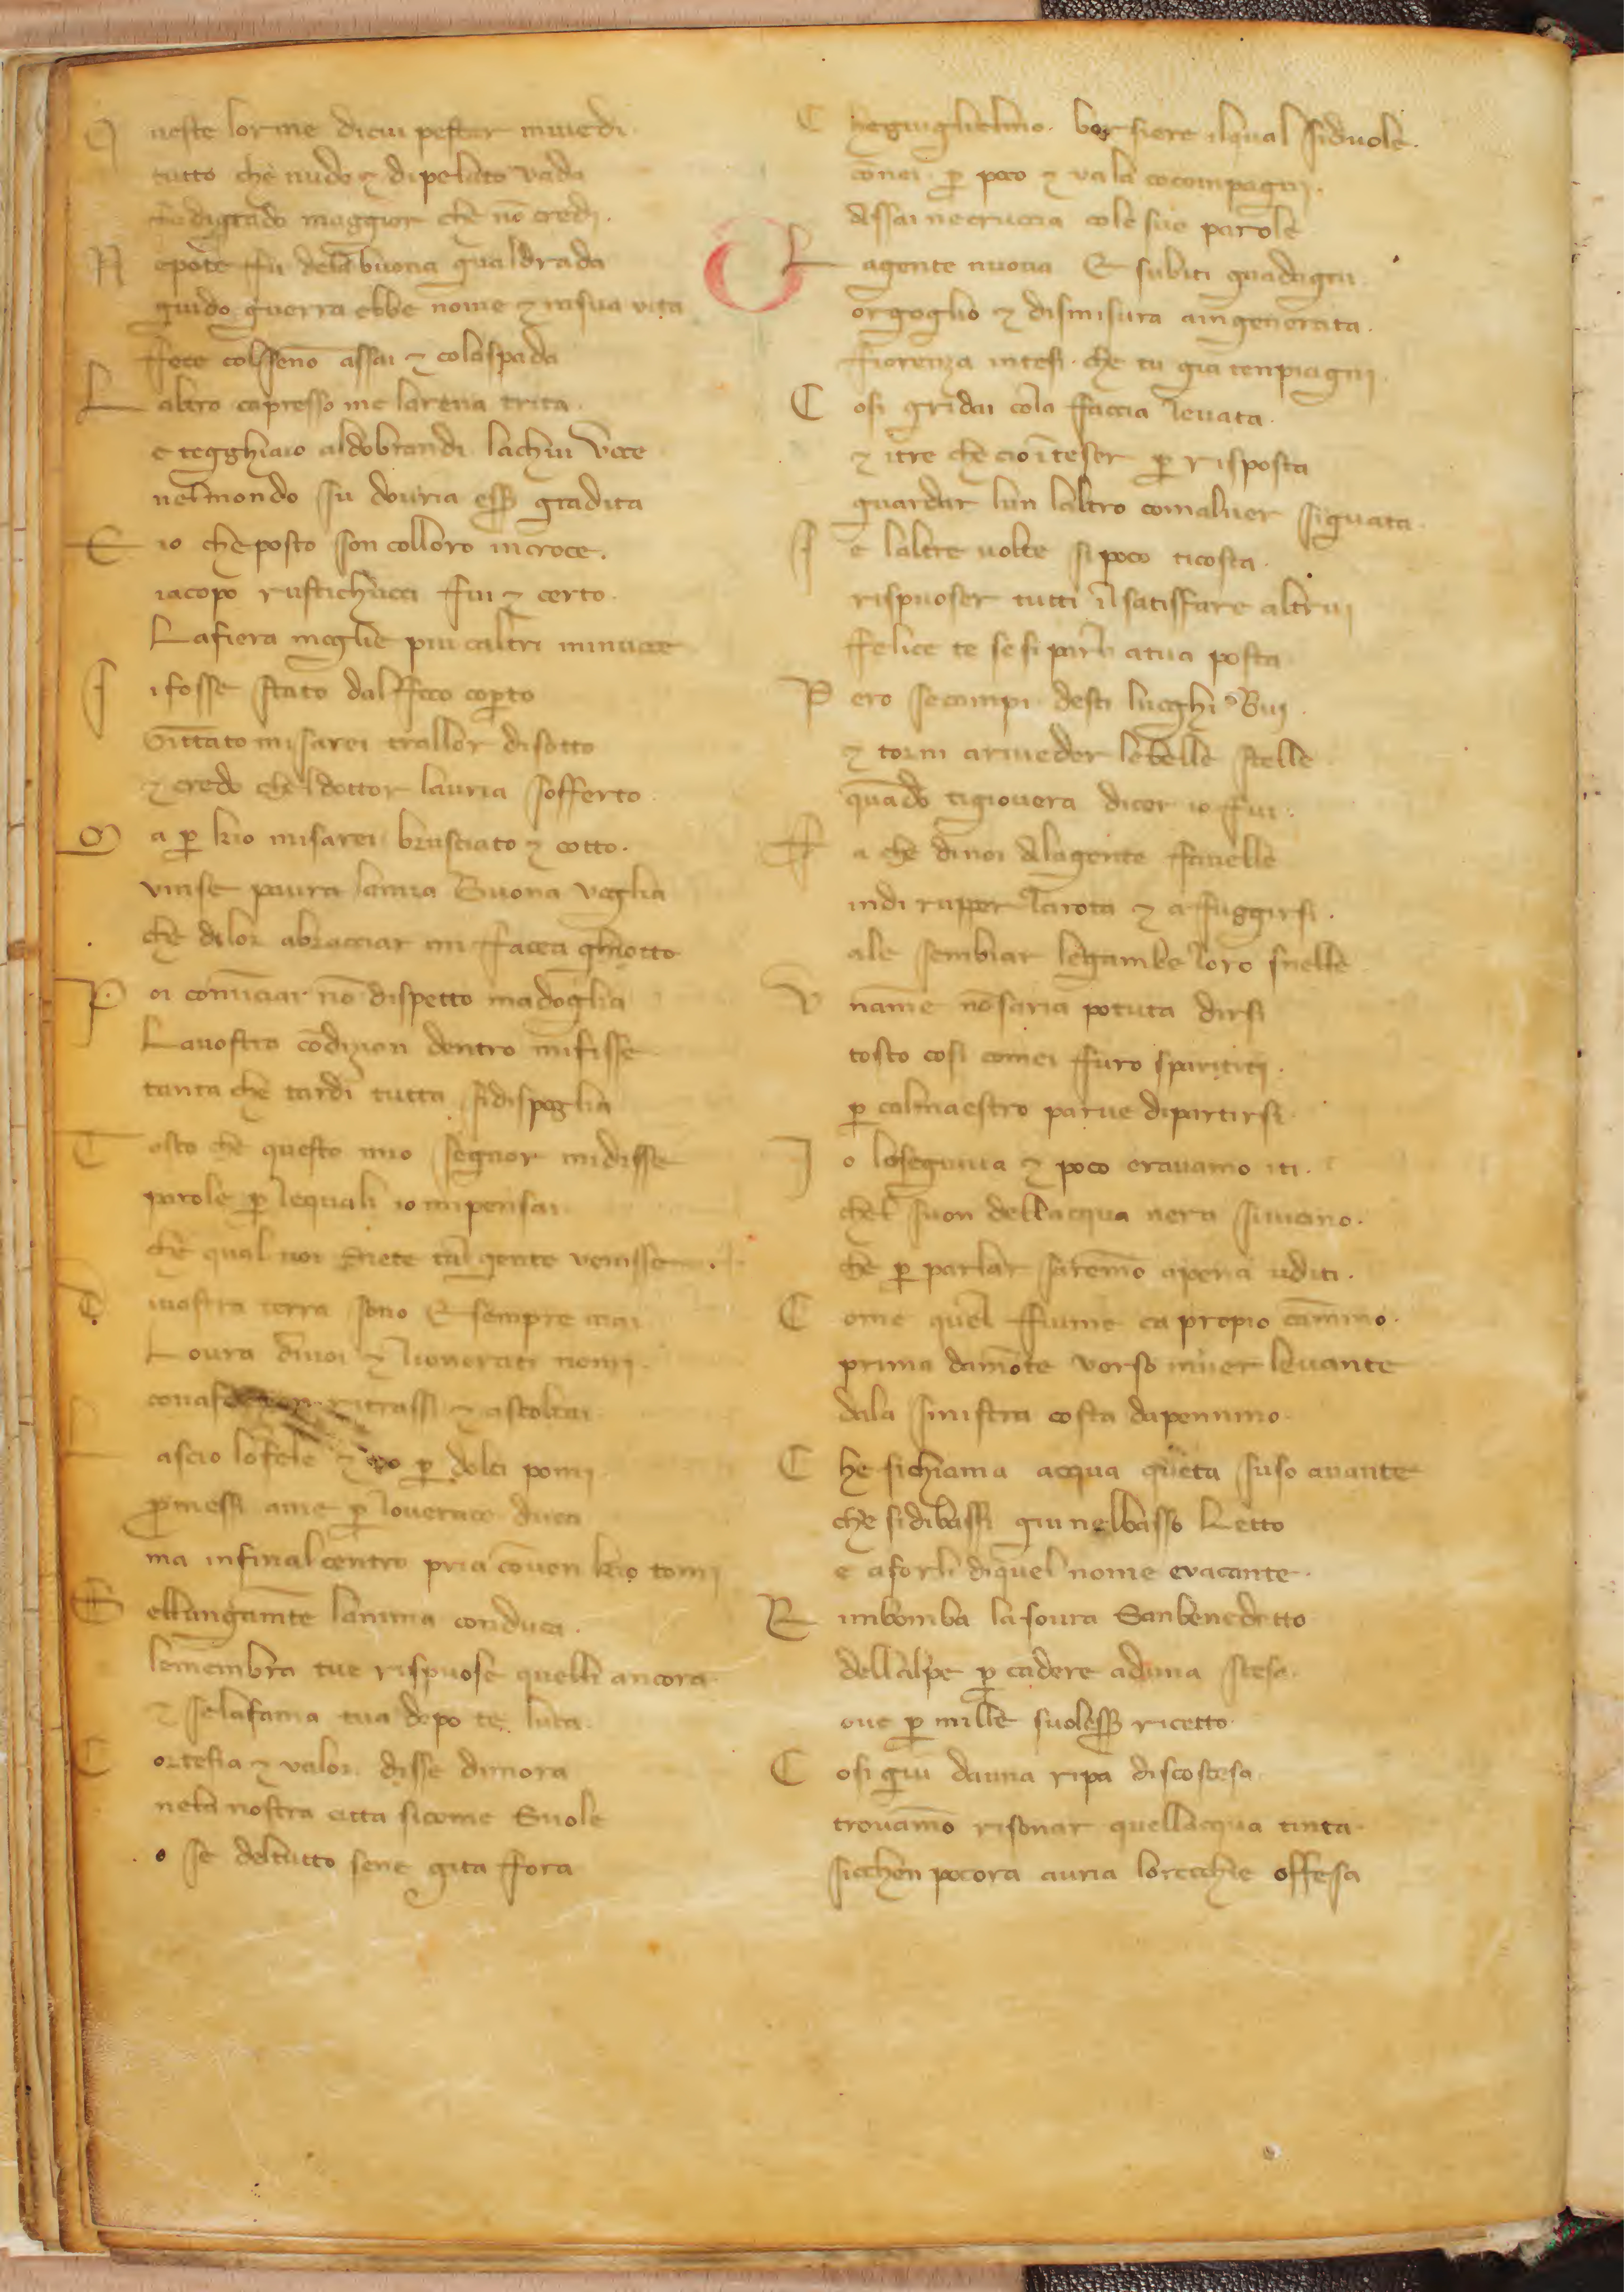 Q ueste lorme dicui pestar miuedi
tutto che nudo ⁊ dipelato vada
fu digrado maggior che nō credi.
N epote fu dela buona gualdrada
guido guerra ebbe nome ⁊ insua vita
fece colsseno assai ⁊ colaspada
L altro capresso me larena trita.
e tegghiaio aldobrandi lachui voce
nelmondo su douria ess̄ gradita
E io cheposto son colloro incroce.
iacopo rustichucci fui ⁊ certo.
Lafiera moglie piu caltri minuoce
S ifosse stato dalffoco coꝑto
Gittato misarei trallor disotto
⁊ credo cheldottor lauria sofferto
M a ꝑ kio misarei brusciato ⁊ cotto.
vinse paura lamia Buona voglia
che dilor abracciar mi facea ghiotto
P oi cominciar nō dispetto madoglia
Lauostra cōdizion dentro mifisse
tanta che tardi tutta sidispoglia
T osto che questo mio segnor midisse
parole ꝑ lequali io mipensai
che qual uoi siete tal gente venisse.
D iuostra terra sono E sempre mai
Loura diuoi ⁊ lionorati nomi.
ritrassi ⁊ ascoltai
L ascio lofele ⁊ vo ꝑ dolci pomj
ꝓmessi ame ꝑ louerace duca
ma infinalcentro pria cōuen kio tomj
S ellungamēte lanima conduca.
lemēmbra tue rispuose quelli ancora.
⁊ selafama tua dopo te luca.
C ortesia ⁊ valor disse dimora
nela nostra citta sicome Suole
o se deltutto sene gita ffora
C heguiglielmo borsiere ilqual siduole.
cōnoi ꝑ poco ⁊ va la cocompagnj.
assai necruccia cole sue parole
L agente nuoua E subiti guadagni
orgoglio ⁊ dismisura aingenerata.
fiorenza intesi che tu gia tenpiagnj
C osi gridai cola ffaccia leuata.
⁊ itre che ciointeser ꝑ risposta
guardar lun laltro comaluer siguata.
S e laltre uolte si poco ticosta.
rispuoser tutti il satisffare altruj
ffelice te sesi parli atua posta
P ero secampi desti luoghi Buj.
⁊ torni ariueder lebelle stelle
quādo tigiouera dicer io ffui.
F a che dinoi alagente ffauelle
indi rupper larota ⁊ a ffuggirsi.
ale sembiar legambe loro snelle
V namē nōsaria potuta dirsi
tosto cosi comei ffuro sparititj.
ꝑ calmaestro parue dipartirsi.
I o loseguiua ⁊ poco erauamo iti.
chel suon dellacqua nera siuicino.
che ꝑ parlar saremo apena uditi.
C ome quel ffiume ca propio camino.
prima damōte vorso inuer leuante
dala sinistra costa dapennino.
C he sichiama acqua queta suso auante
che sidibassi giu nelbasso Letto
e aforli diquel nome evacante.
R imbomba lasoura Sanbenedetto
dellalpe ꝑ cadere aduna scesa.
oue ꝑ mille suoless̄ ricetto.
C osi giu dauna ripa discoscesa.
trouamo risonar quellacqua tinta.
sicchen pocora auria lorecchie offesa